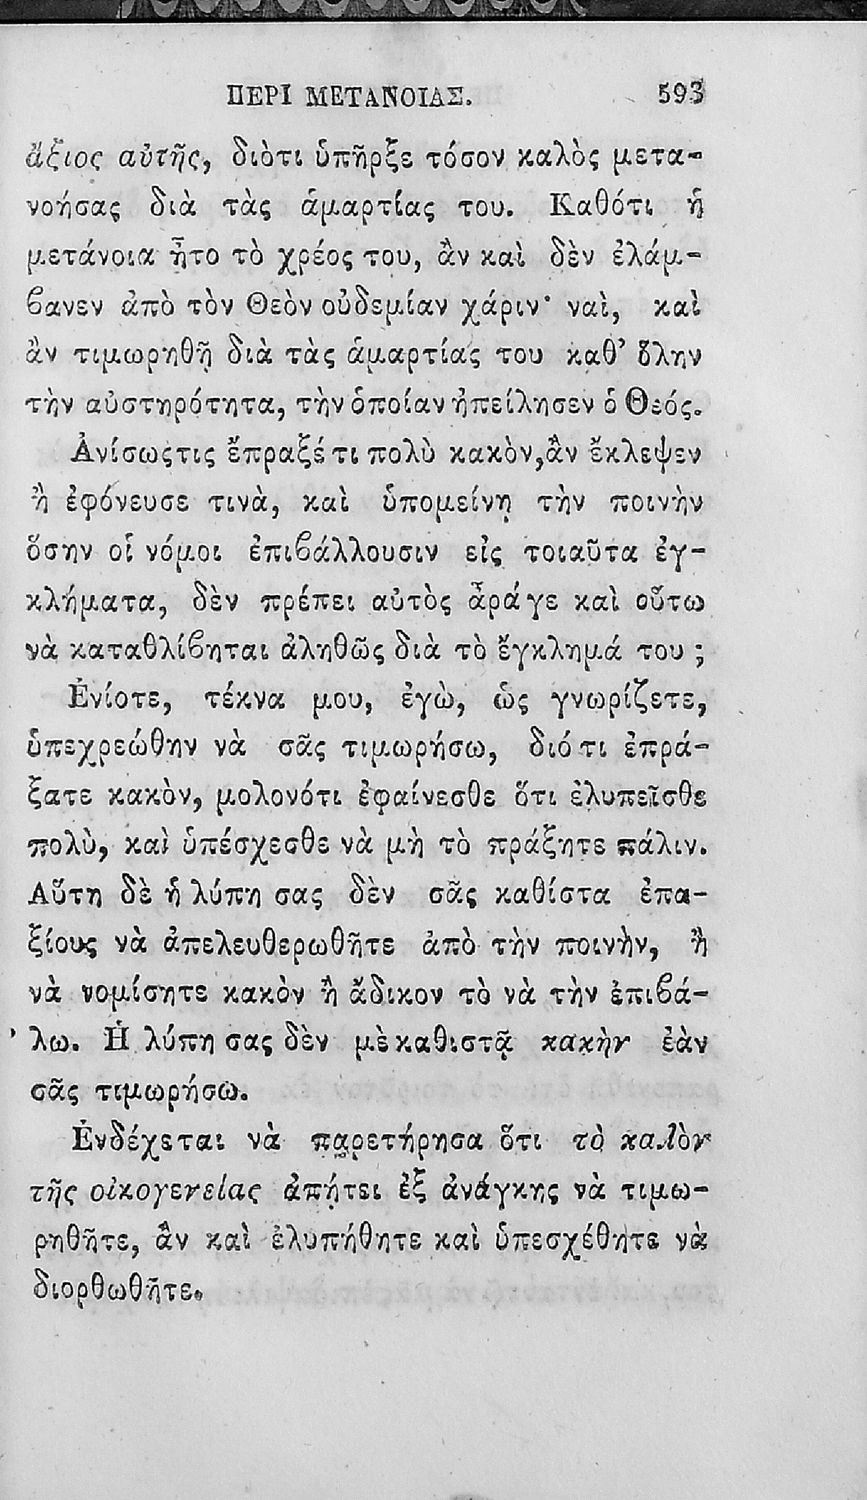 ΠΕΡΙ ΜΕΤΑΝΟΙΑΣ. 593
ἄξιος αὐτῆς, διὸτι ὑπῆρξε τόσον καλὸς μετα-
νοήσας διὰ τὰς ἁμαρτίας του. Καθότι ἡ
μετάνοια ἦτο τὸ χρέος του, ἂν καὶ δὲν ἐλάμ-
βανεν ἀπὸ τὸν Θεὸν οὐδεμίαν χάριν· ναὶ, καὶ
ἂν τιμωρηθῇ διὰ τὰς ἁμαρτίας του καθ’ ὅλην
τὴν αὐστηρότητα, τὴν ὁποίαν ἠπείλησεν ὁ Θεός.
Ἀνίσως τις ἔπραξέ τι πολὺ κακὸν, ἂν ἔκλεψεν
ἢ ἐφόνευσε τινὰ, καὶ ὑπομείνῃ τὴν ποινὴν
ὅσην οἱ νόμοι ἐπιβάλλουσιν εἰς τοιαῦτα ἐγ-
κλήματα, δὲν πρέπει αὐτὸς ἆράγε καὶ οὕτω
νὰ καταθλίβηται ἀληθῶς διὰ τὸ ἔγκλημά του ;
Ἐνίοτε, τέκνα μου, ἐγὼ, ὡς γνωρίζετε,
ὑπεχρεώθην νὰ σᾶς τιμωρήσω, διότι ἐπρά-
ξατε κακὸν, μολονότι ἐφαίνεσθε ὅτι ἐλυπεῖσθε
πολὺ, καὶ ὑπέσχεσθε νὰ μὴ τὸ πράξητε πάλιν.
Αὕτη δὲ ἡ λύπη σας δὲν σᾶς καθίστα ἐπα-
ξίους νὰ ἀπελευθερωθῆτε ἀπὸ τὴν ποινὴν, ἢ
νὰ νομίσητε κακὸν ἢ ἄδικον τὸ νὰ τὴν ἐπιβά-
λω. Ἡ λύπη σας δὲν μὲ καθιστᾷ κακὴν ἐὰν
σᾶς τιμωρήσω.
Ἐνδέχεται νὰ παρετήρησα ὅτι τὸ καλὸν
τῆς οἰκογενείας ἀπῄτει ἐξ ἀνάγκης νὰ τιμω-
ρηθῆτε, ἂν καὶ ἐλυπήθητε καὶ ὑπεσχέθητε νὰ
διορθωθῆτε.